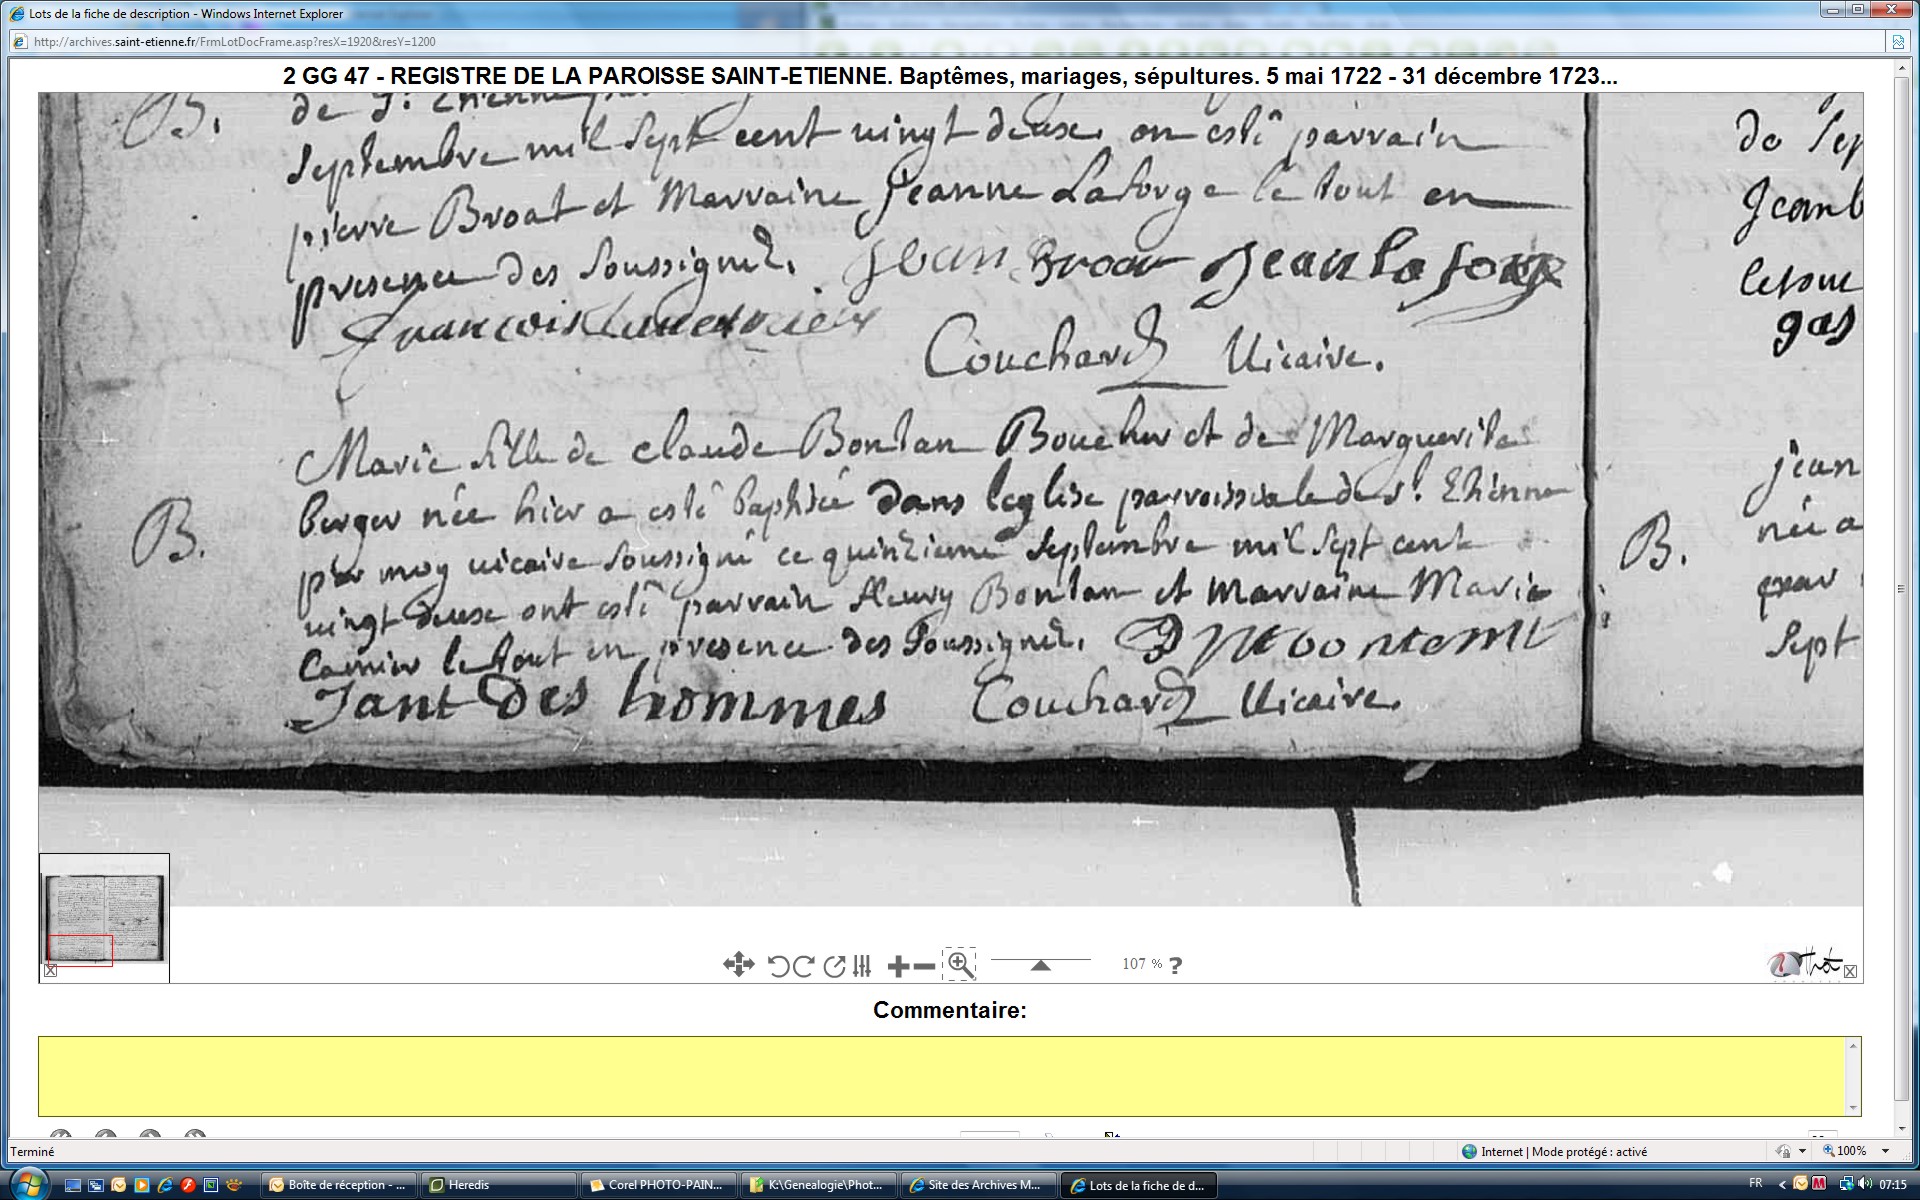 Lots de la fiche de description - Windows Internet Explorer
http://archives.saint-etienne.fr/FrmLotDocFrame.asp?resX=1920&resY=1200
2 GG 47 - REGISTRE DE LA PAROISSE SAINT-ETIENNE. Baptêmes, mariages, sépultures. 5 mai 1722 - 31 décembre 1723...
B. de St. Etienne par
septembre mil sept cent vingt deux. on esté parrain
pierre Broat et Marraine Jeanne Laforge le tout en
presence des soussignez. Jean Broat Jean Laforge
françois
Couchard Vicaire.
Marie fille de claude Bontan Boucher et de Marguerite
B. berger née hier a esté baptisée dans leglise parroissiale de st. Ethienne
par moy vicaire soussigné ce quinzieme septembre mil sept cent
vingt deux ont esté parrain fleury Bontan et marraine Marie
le tout en presence des soussignez.
Jant des hommes Couchard Vicaire.
de sep
Jean
gas
jean
B. née a
par
sept
107 % ?
Thot
Commentaire:
Terminé
Internet | Mode protégé : activé
100%
Boîte de réception - ...
Heredis
Corel PHOTO-PAIN...
K:\Genealogie\Phot...
Site des Archives M...
Lots de la fiche de d...
FR
07:15